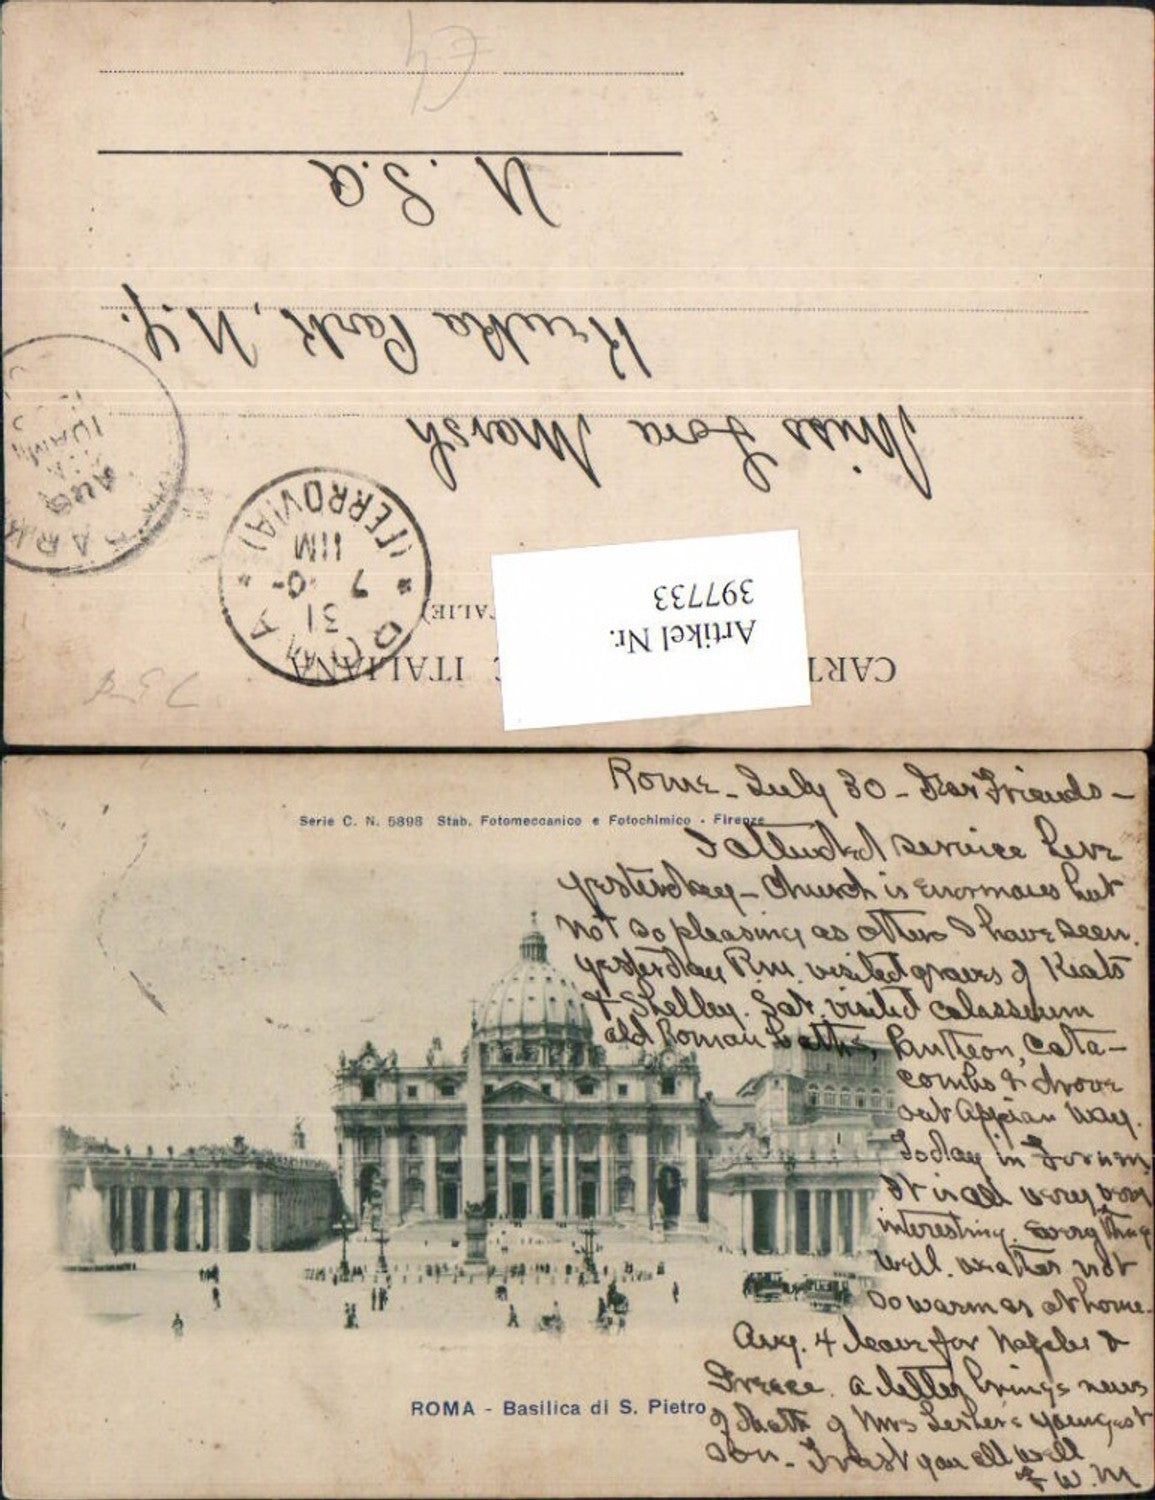 CARTOLINA POSTALE ITALIANA
Artikel Nr.
397733
TALIE)
ROMA
31
7 - 0
11M
(FERROVIA)
PARK
AUG
10AM
Miss Lora Marsh
Keuka Park, N.Y.
U.S.a
Serie C. N. 5898 Stab. Fotomeccanico e Fotochimico - Firenze
Rome - July 30 - Dear Friends -
I attended service here
yesterday - Church is enormous but
not so pleasing as others I have seen.
yesterday P.M. visited graves of Keats
& Shelley. Sat. visited colosseum
old Roman baths, Pantheon, Cata-
combs & drove
out Appian Way.
Today in Forum
It is all very very
interesting. Everything
well. weather not
so warm as at home.
Aug. 4 leave for Naples &
Greece. a letter brings news
of death of Mrs youngest
son - Trust you all well
F. W. M
ROMA - Basilica di S. Pietro